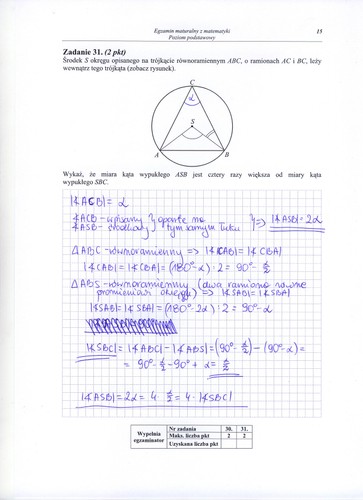 Egzamin maturalny z matematyki
Poziom podstawowy
15
Zadanie 31. (2 pkt)
Środek S okręgu opisanego na trójkącie równoramiennym ABC, o ramionach AC i BC, leży
wewnątrz tego trójkąta (zobacz rysunek).
C
α
S
A B
Wykaż, że miara kąta wypukłego ASB jest cztery razy większa od miary kąta
wypukłego SBC.
|∢ACB| = α
∢ACB - wpisany } oparte na
∢ASB - środkowy } tym samym łuku } => |∢ASB| = 2α
△ABC - równoramienny => |∢CAB| = |∢CBA|
|∢CAB| = |∢CBA| = (180° - α) : 2 = 90° - α/2
△ABS - równoramienny (dwa ramiona równe
promieniowi okręgu) => |∢SAB| = |∢SBA|
|∢SAB| = |∢SBA| = (180° - 2α) : 2 = 90° - α
|∢SBC| = |∢ABC| - |∢ABS| = (90° - α/2) - (90° - α) =
= 90° - α/2 - 90° + α = α/2
|∢ASB| = 2α = 4 · α/2 = 4 · |∢SBC|
Wypełnia egzaminator
Nr zadania 30. 31.
Maks. liczba pkt 2 2
Uzyskana liczba pkt